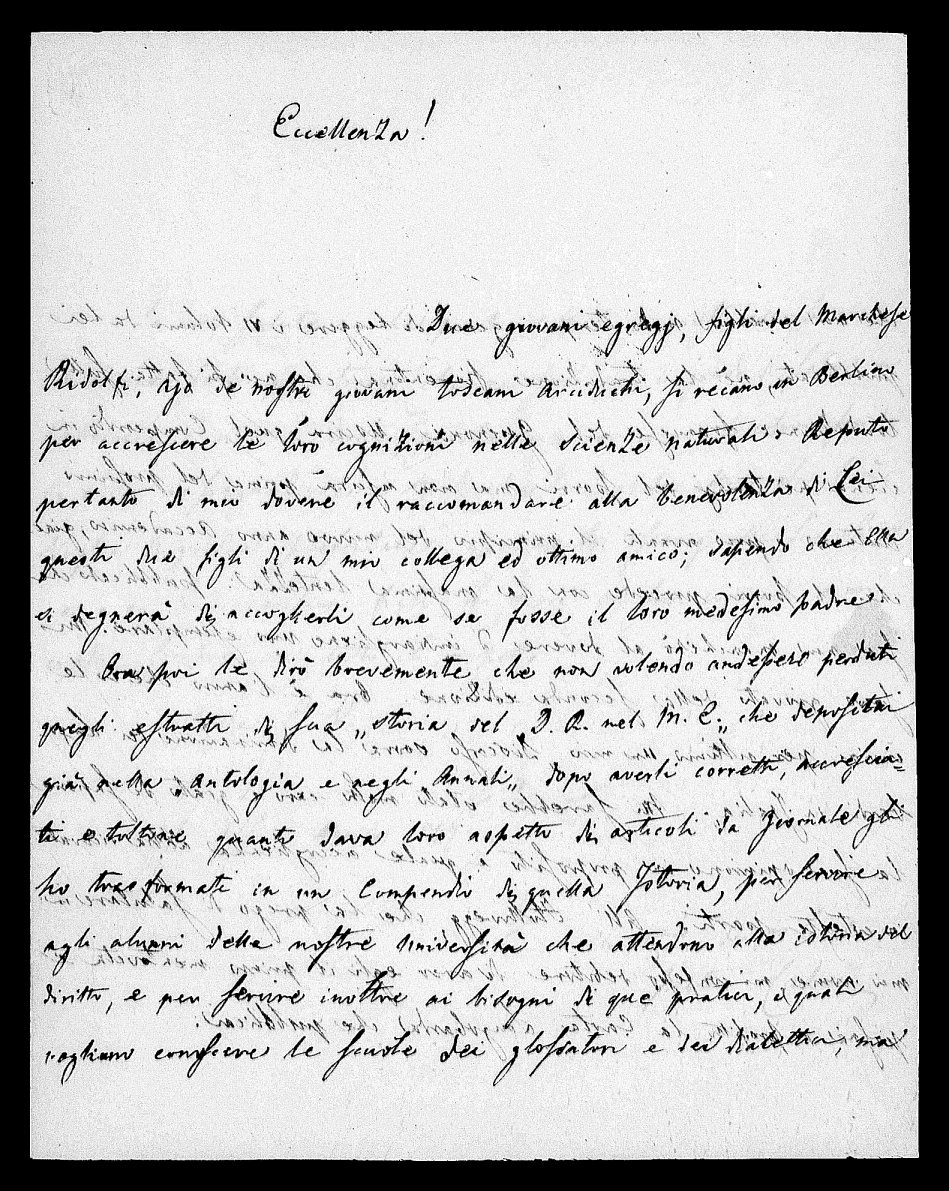 Eccellenza!
Due giovani egregj, figli del Marchese
Ridolfi, Ajo de nostri giovani toscani Arciduchi, si recano in Berlino
per accrescere le loro cognizioni nelle scienze naturali. Reputo
pertanto di mio dovere il raccomandare alla benevolenza di Lei
questi due figli di un mio collega ed ottimo amico; sapendo che Ella
si degnerà di accoglierli come se fosse il loro medesimo padre
Ora poi le dirò brevemente che non volendo andessero perduti
quegli estratti di sua „storia del D. R. nel M. E.„ che depositai
già nella Antologia e negli Annali„ dopo averli corretti, accrescia=
ti e toltone quanto dava loro aspetto di articoli da Giornale gli
ho trasformati in un Compendio di quella Istoria, per servire
agli alunni delle nostre Università che attendono alla istoria del
diritto, e per servire inoltre ai bisogni di que pratici, i quali
vogliano conoscere le scuole dei glossatori e dei dialettici, ma